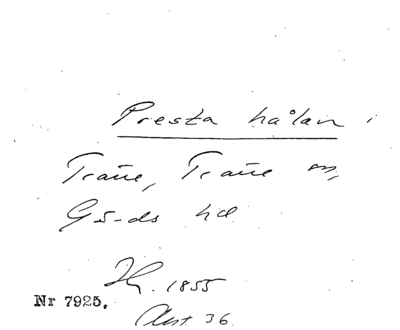 Presta hålan i
Träne, Träne sn,
Gä-ds hd
1855
Nr 7925.
Avt. 36